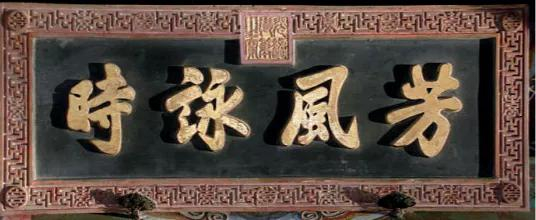 芳風詠時